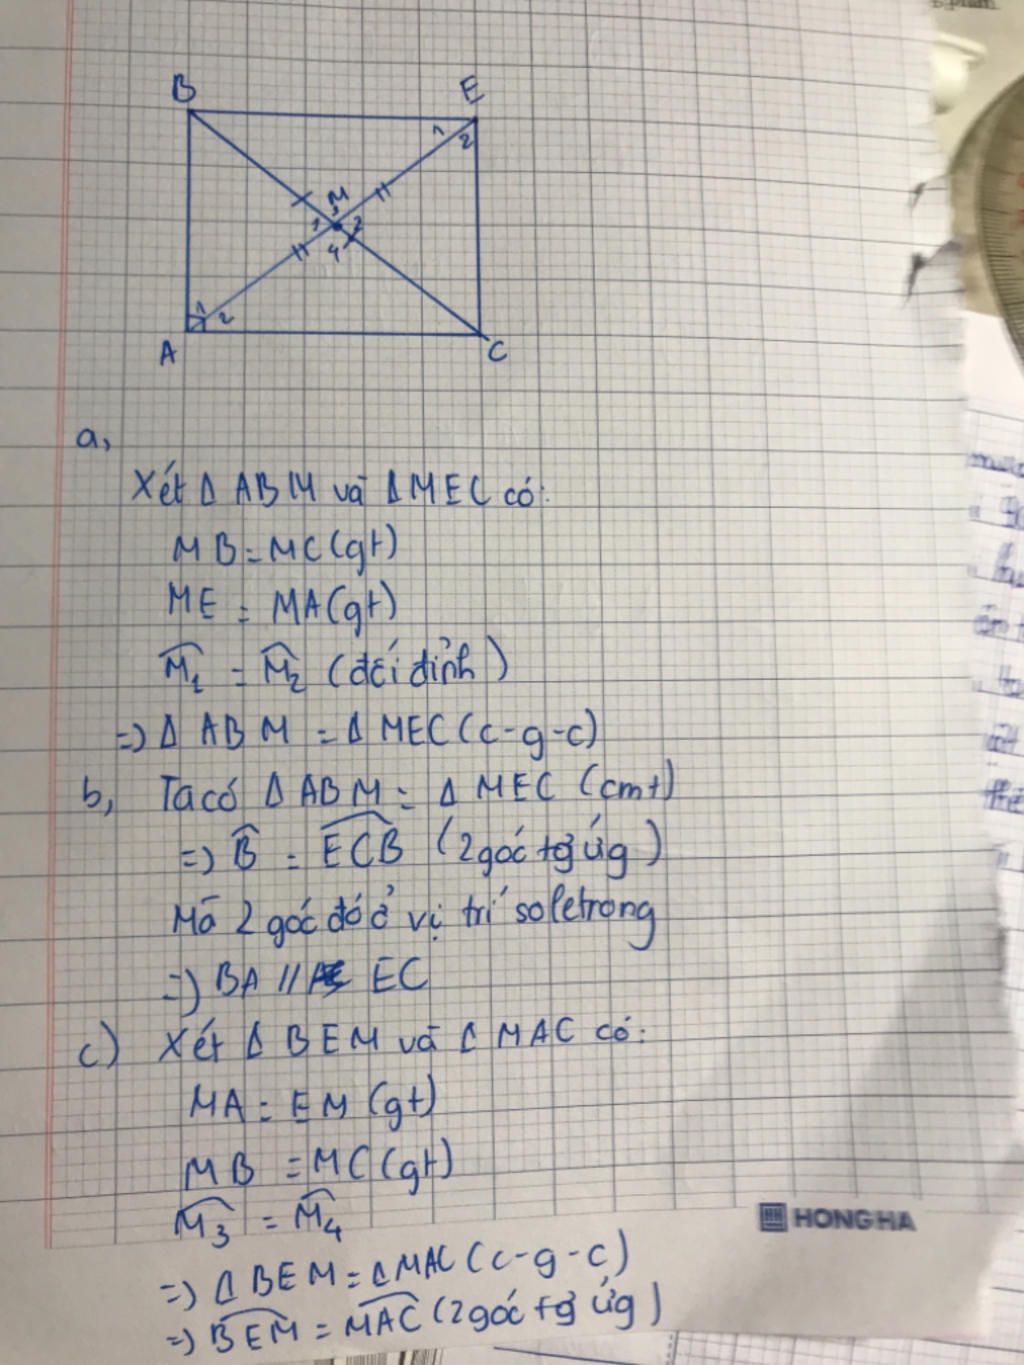 B E
1 2
M
3
1 2
4
1 2
A C
a,
Xét Δ ABM và Δ MEC có:
MB = MC (gt)
ME = MA (gt)
M̂₁ = M̂₂ (đối đỉnh)
=> Δ ABM = Δ MEC (c-g-c)
b, Ta có Δ ABM = Δ MEC (cmt)
=> B̂ = ECB (2 góc tơ ứg)
Mà 2 góc đó ở vị trí so le trong
=> BA // EC
c) Xét Δ BEM và Δ MAC có:
MA = EM (gt)
MB = MC (gt)
M̂₃ = M̂₄
=> Δ BEM = Δ MAC (c-g-c)
=> BEM = MAC (2 góc tơ ứg)
HONG HA